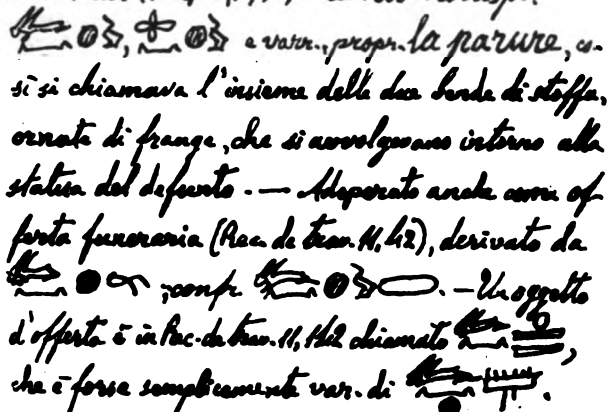 e varr., propr. la parure, co-
sì si chiamava l'insieme delle due bende di stoffa,
ornate di frange, che si avvolgevano intorno alla
statua del defunto. — Adoperato anche come of-
ferta funeraria (Rec. de trav. 11, 142), derivato da
; confr. . — Un oggetto
d'offerta è in Rec. de trav. 11, 142 chiamato ,
che è forse semplicemente var. di .